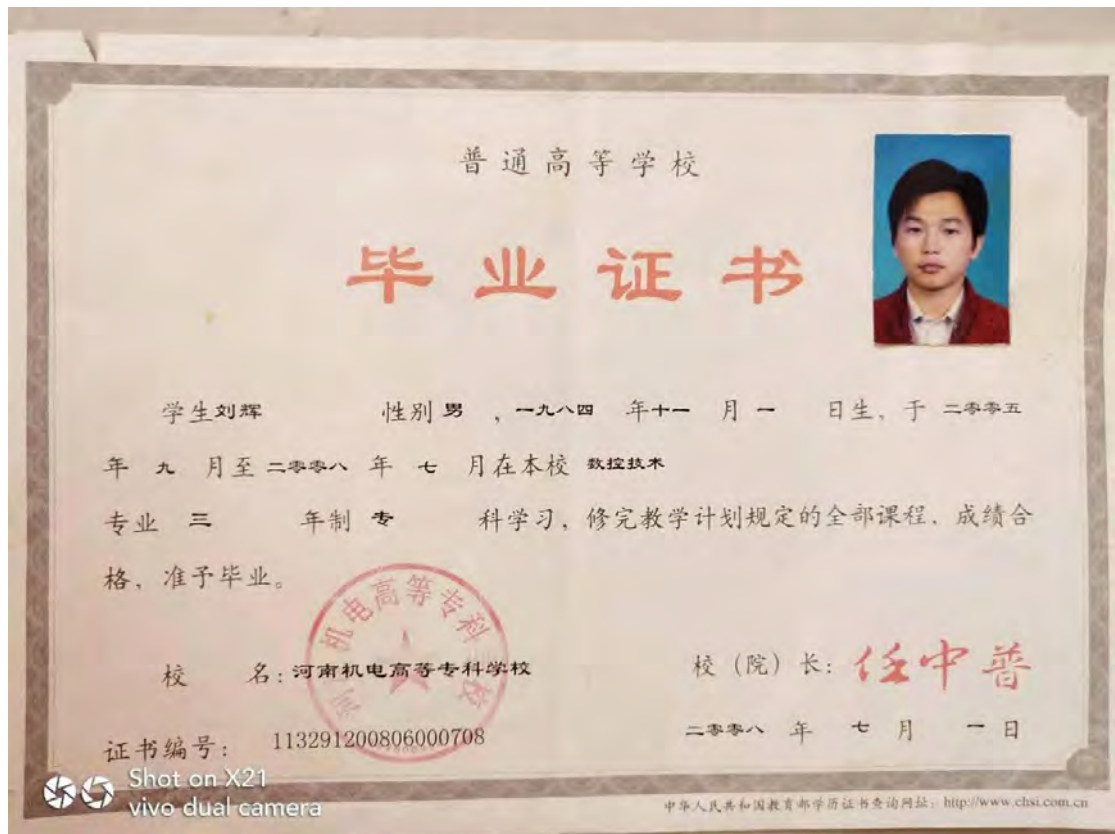 普通高等学校
毕业证书
学生刘辉 性别 男 ,一九八四 年十一 月 一 日生、于 二零零五
年 九 月至 二零零八 年 七 月在本校 数控技术
专业 三 年制 专 科学习，修完教学计划规定的全部课程、成绩合
格、准予毕业。
河南机电高等专科学校
校 名:河南机电高等专科学校
校（院）长: 任中普
二零零八 年 七 月 一 日
证书编号: 113291200806000708
Shot on X21
vivo dual camera
中华人民共和国教育部学历证书查询网址: http://www.chsi.com.cn